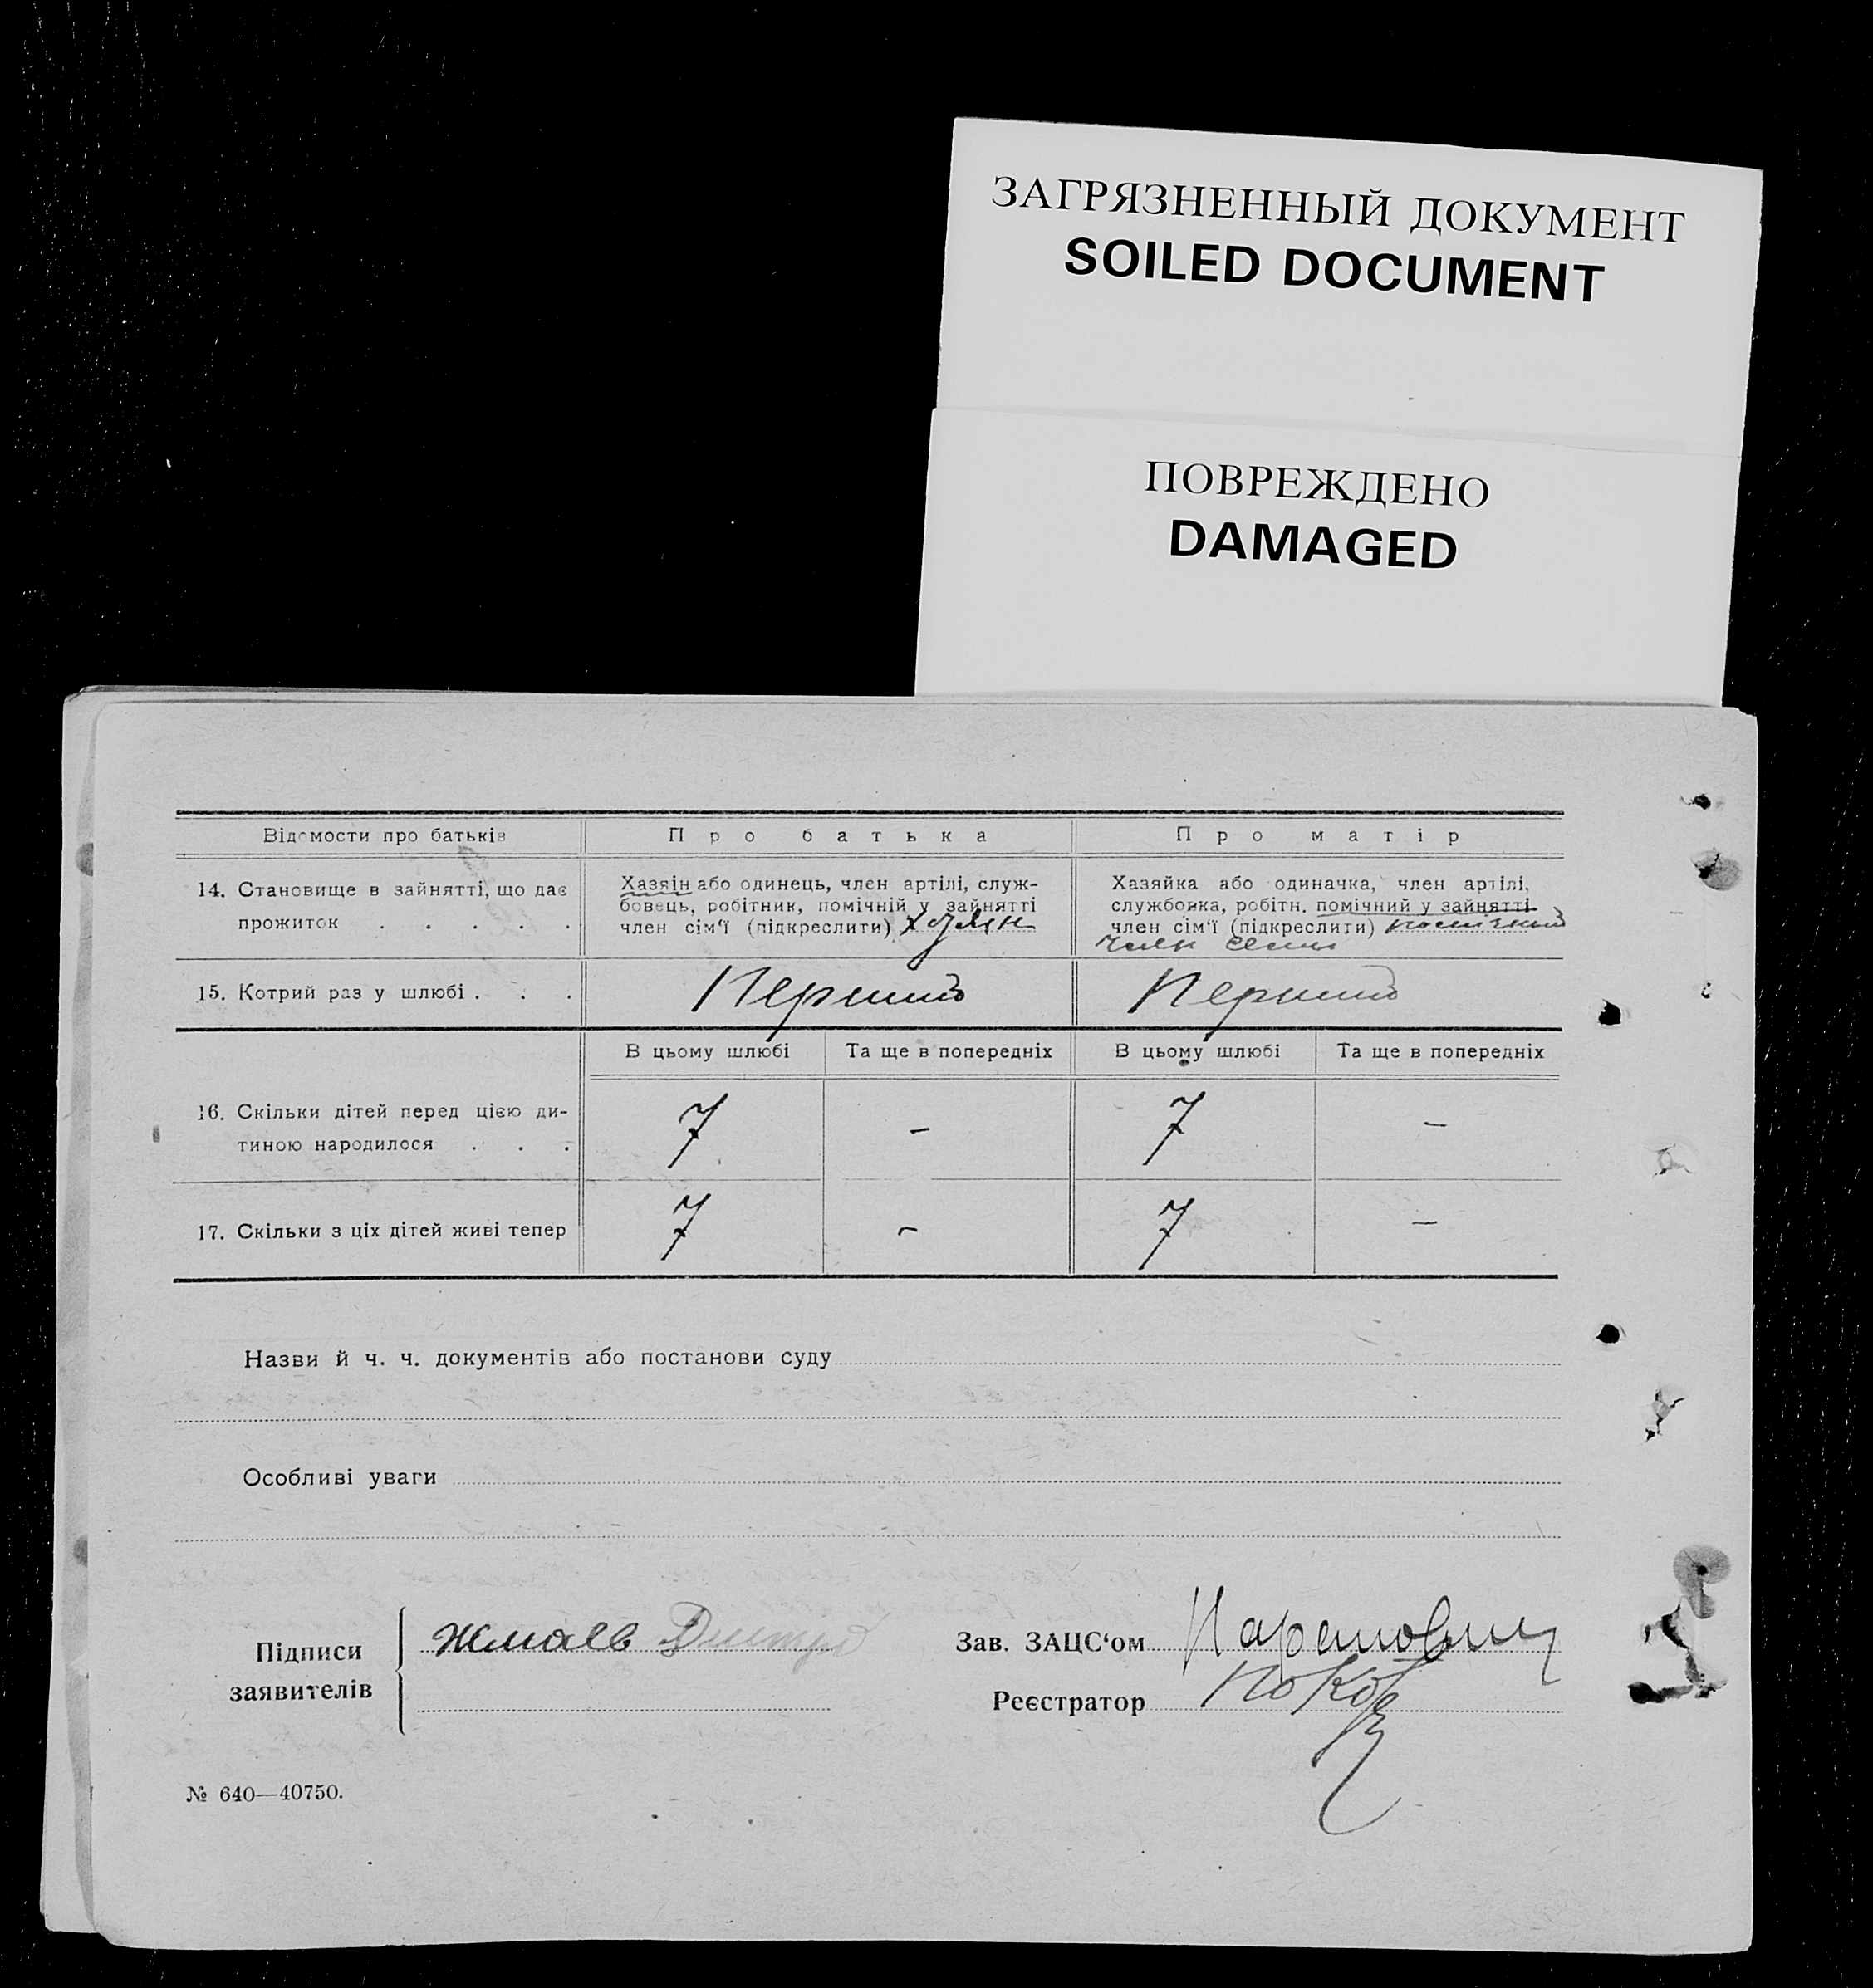 ЗАГРЯЗНЕННЫЙ ДОКУМЕНТ
SOILED DOCUMENT
ПОВРЕЖДЕНО
DAMAGED
Відомости про батьків
Про батька
Про матір
14. Становище в зайнятті, що дає
прожиток . . . . .
Хазяін або одинець, член артілі, служ-
бовець, робітник, помічній у зайнятті
член сім‘ї (підкреслити) хозяін
Хазяйка або одиначка, член артілі,
службовка, робітн. помічний у зайнятті
член сім‘ї (підкреслити) помічный
член семьи
15. Котрий раз у шлюбі . . .
Перший
Перший
В цьому шлюбі
Та ще в попередніх
В цьому шлюбі
Та ще в попередніх
16. Скільки дітей перед цією ди-
тиною народилося . . .
7
–
7
–
17. Скільки з ціх дітей живі тепер
7
–
7
–
Назви й ч. ч. документів або постанови суду
Особливі уваги
Підписи
заявителів
Жмаев Дмитро
Зав. ЗАЦС‘ом
Реєстратор
№ 640—40750.